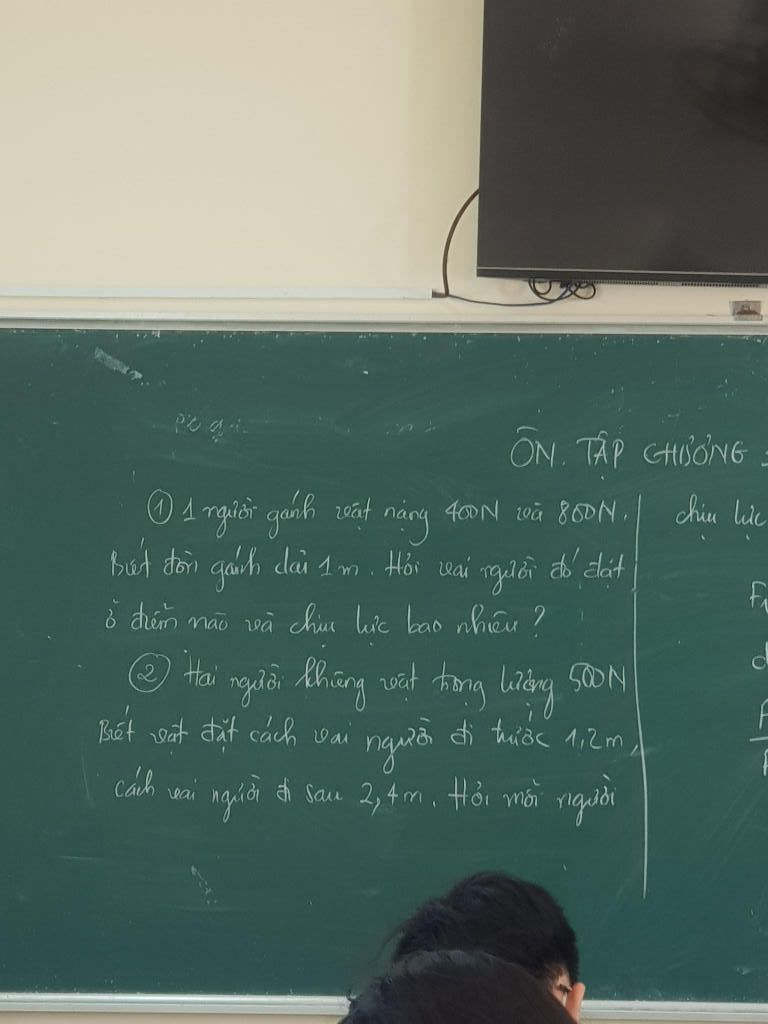 ÔN. TẬP CHƯƠNG
① 1 người gánh vật nặng 400N và 800N.
Biết đòn gánh dài 1m. Hỏi vai người đó đặt
ở điểm nào và chịu lực bao nhiêu?
② Hai người khiêng vật trọng lượng 500N
Biết vật đặt cách vai người đi trước 1,2m,
cách vai người đi sau 2,4m. Hỏi mỗi người
chịu lực